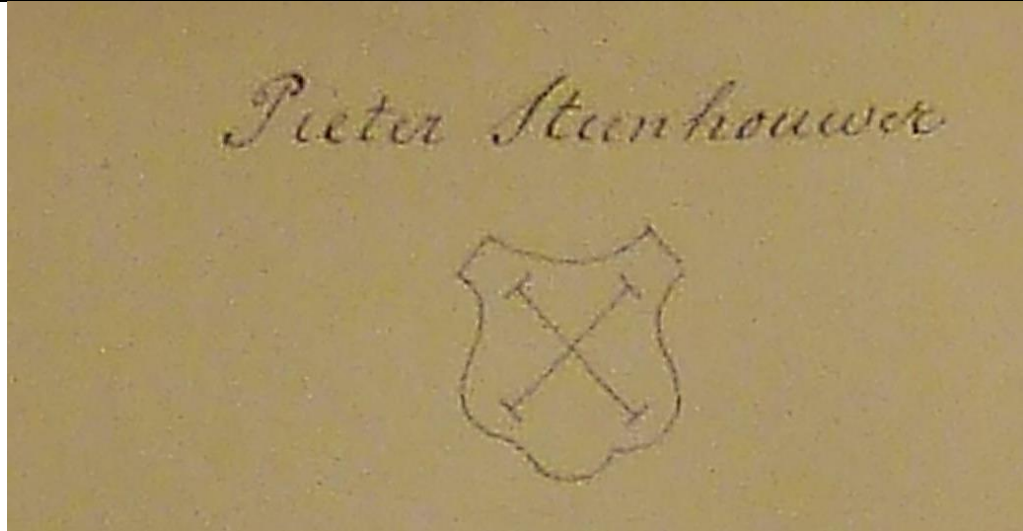 Pieter Steenhouwer